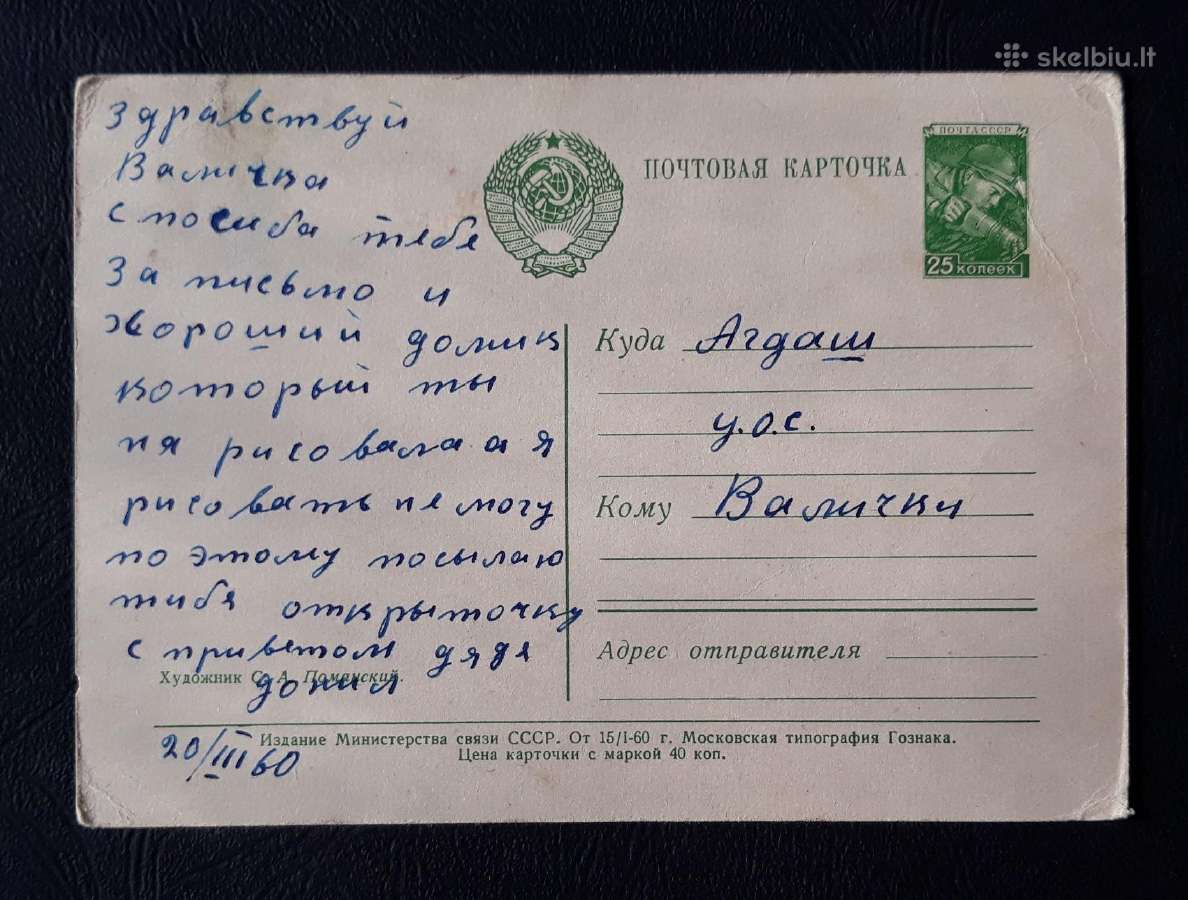 skelbiu.lt
Здравствуй
Валичка
спосиба тебе
За письмо и
хороший домик
который ты
ня рисовала а я
рисовать не могу
по этому посылаю
тибя открыточку
с приветом дядя
ПОЧТОВАЯ КАРТОЧКА
ПОЧТА СССР
25 копеек
Куда Агдаш
у.о.с.
Кому Валички
Адрес отправителя
Художник С. А. Помянский.
20/III 60
Издание Министерства связи СССР. От 15/I-60 г. Московская типография Гознака.
Цена карточки с маркой 40 коп.